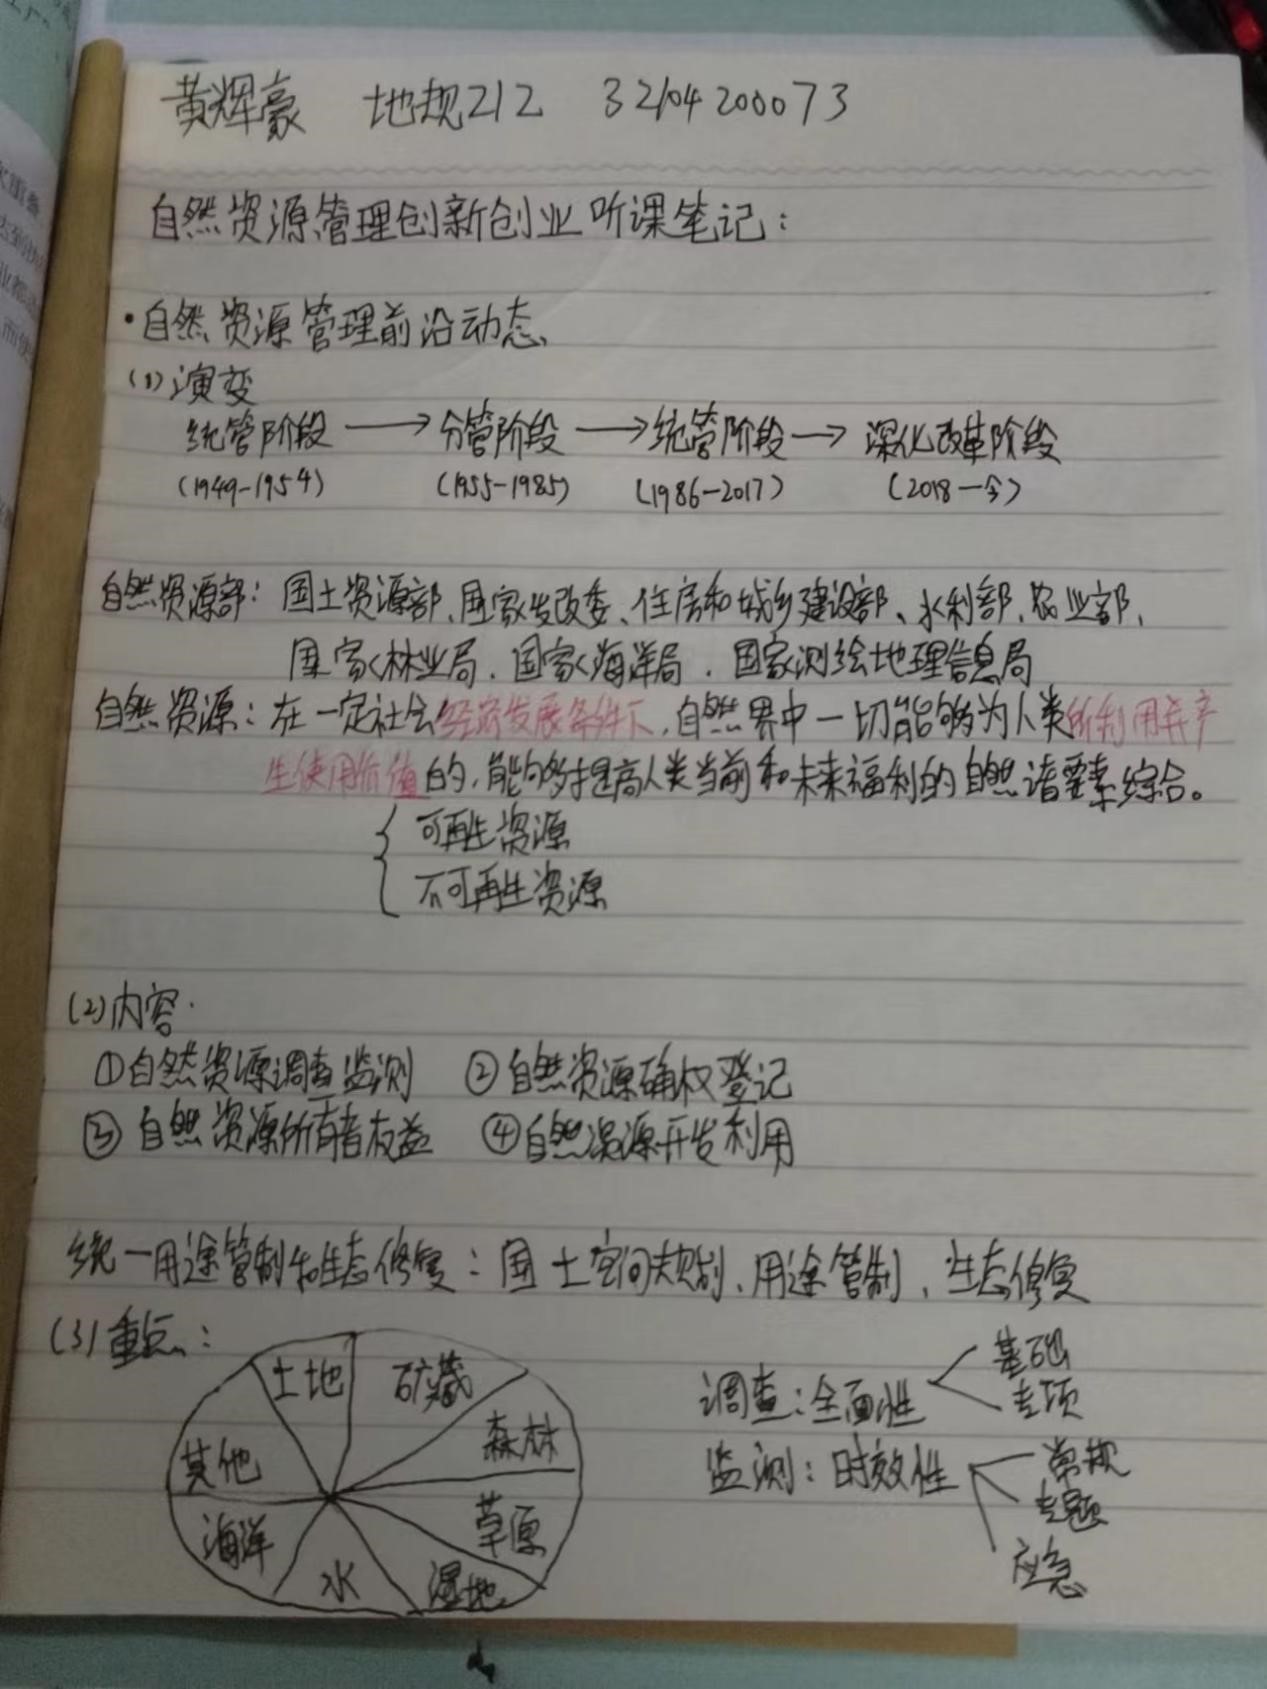 黄辉豪 地规212 32104200073
自然资源管理创新创业听课笔记：
·自然资源管理前沿动态、
(1)演变
统管阶段 → 分管阶段 → 统管阶段 → 深化改革阶段
(1949-1954) (1955-1985) (1986-2017) (2018-今)
自然资源部：国土资源部、国家发改委、住房和城乡建设部、水利部、农业部、
国家林业局、国家海洋局、国家测绘地理信息局
自然资源：在一定社会经济发展条件下，自然界中一切能够为人类所利用并产
生使用价值的，能够提高人类当前和未来福利的自然诸要素综合。
可再生资源
不可再生资源
(2)内容.
①自然资源调查监测 ②自然资源确权登记
③自然资源所有者权益 ④自然资源开发利用
统一用途管制和生态修复：国土空间规划、用途管制、生态修复
(3)重点：
土地 矿藏
森林
草原
湿地
水
海洋
其他
调查：全面性
基础
专项
监测：时效性
常规
专题
应急